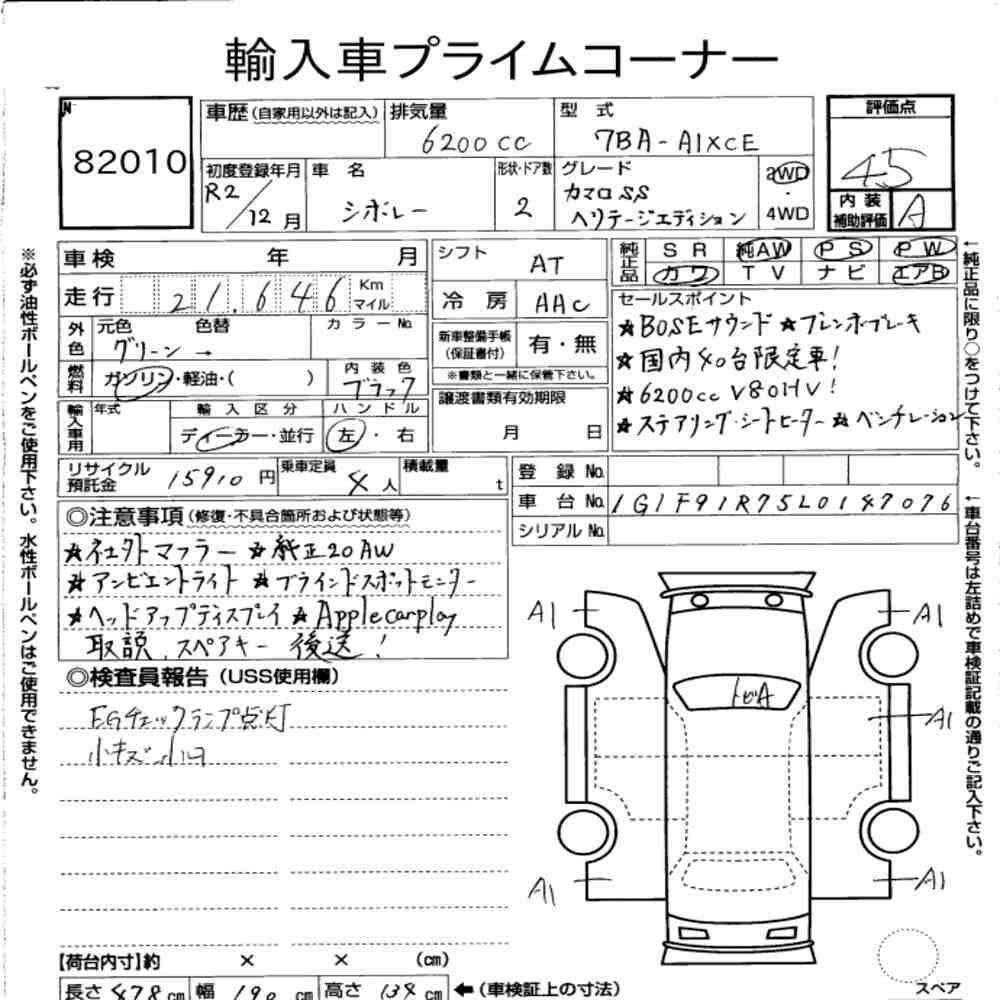 輸入車プライムコーナー
82010
車歴(自家用以外は記入)
排気量
6200cc
型式
7BA-A1XCE
評価点
4.5
初度登録年月
R2/12月
車名
シボレー
形状・ドア数
2
グレード
カマロSS
ヘリテージエディション
2WD
・
4WD
内装
補助評価
A
車検 年 月
走行 21.646 Km マイル
外色
元色 色替 カラーNo.
グリーン →
燃料
ガソリン・軽油・( )
内装色
ブラック
輸入車用
年式
輸入区分
ディーラー・並行
ハンドル
左・右
シフト
AT
冷房
AAC
新車整備手帳
(保証書付)
有・無
※書類と一緒に保管下さい。
譲渡書類有効期限
月 日
純正品
SR 純AW PS PW
カワ TV ナビ エアB
セールスポイント
★BOSEサウンド ★ブレンボブレーキ
★国内40台限定車!
★6200cc V8OHV!
★ステアリング・シートヒーター ★ベンチレーション
リサイクル
預託金
15910円
乗車定員
4人
積載量
t
登録No.
車台No. 1G1F91R75L0147076
シリアルNo.
◎注意事項(修復・不具合箇所および状態等)
★社外マフラー ★純正20AW
★アンビエントライト ★ブラインドスポットモニター
★ヘッドアップディスプレイ ★Apple carplay
取説、スペアキー 後送!
◎検査員報告(USS使用欄)
EGチェックランプ点灯
小キズ小凹
A1
A1
トビA
A1
A1
A1
スペア
【荷台内寸】約 × × (cm)
長さ478cm 幅190cm 高さ134cm ←(車検証上の寸法)
※必ず油性ボールペンをご使用下さい。水性ボールペンはご使用できません。
←純正品に限り○をつけて下さい。
←車台番号は左詰めで車検証記載の通りご記入下さい。